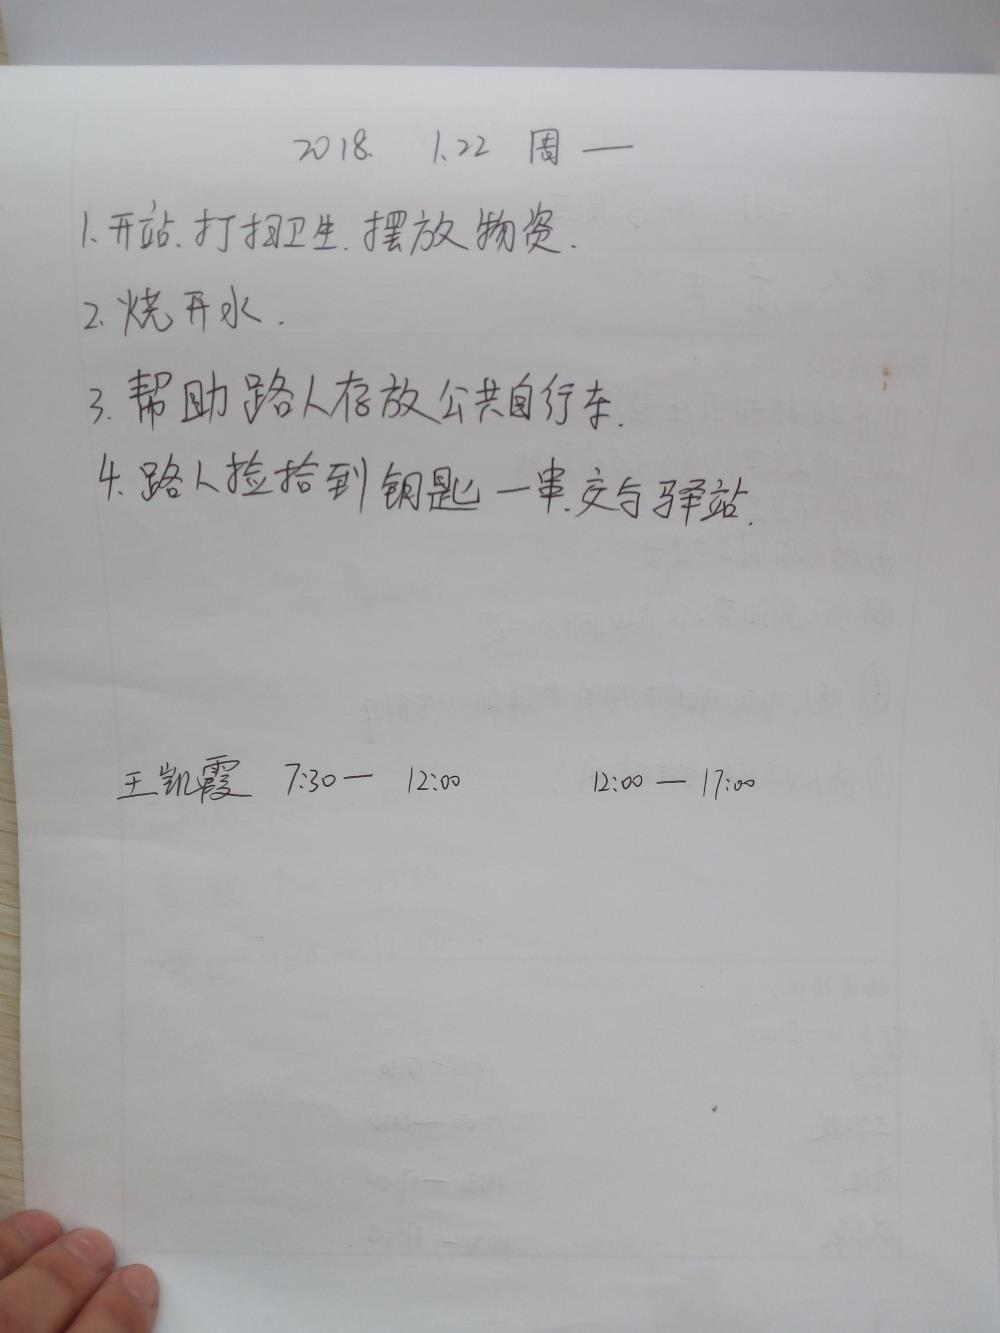 2018. 1.22 周一
1. 开站.打扫卫生.摆放物资.
2. 烧开水.
3. 帮助路人存放公共自行车.
4. 路人捡拾到钥匙一串.交与驿站.
王凯霞 7:30— 12:00 12:00—17:00